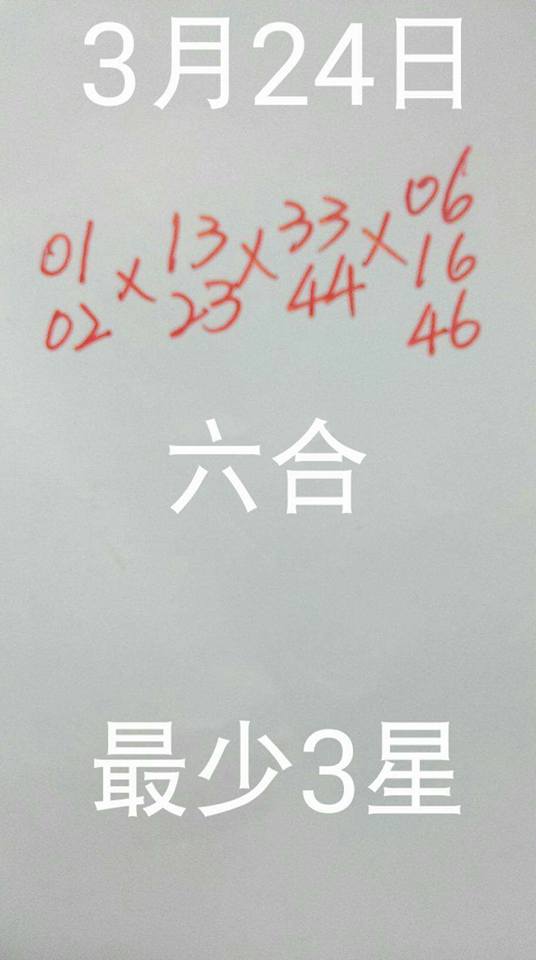 3月24日
01 × 13 × 33 × 06
02 23 44 16
46
六合
最少3星